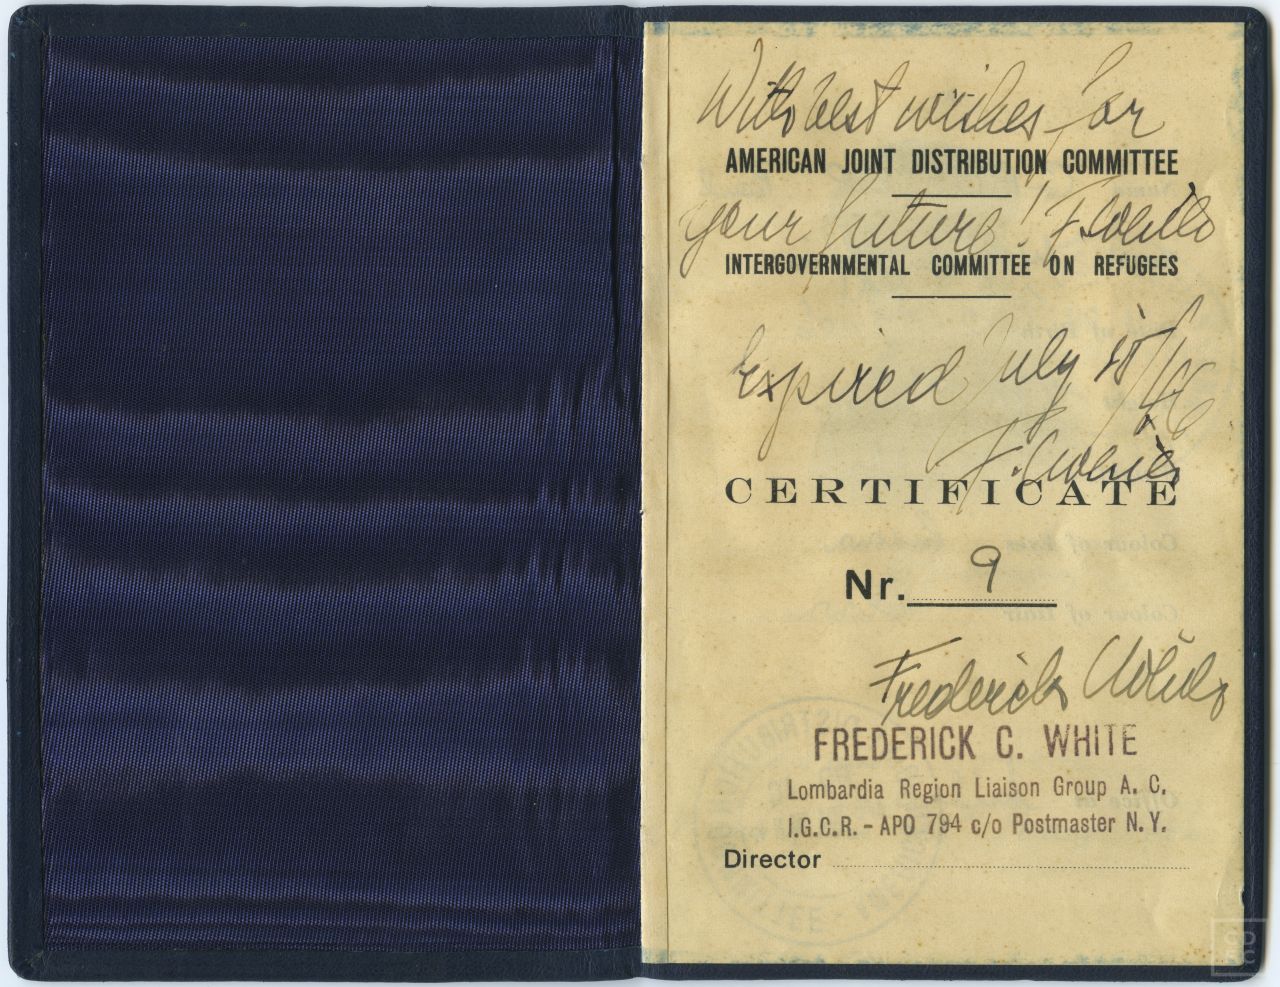 With best wishes for
AMERICAN JOINT DISTRIBUTION COMMITTEE
your future! F. White
INTERGOVERNMENTAL COMMITTEE ON REFUGEES
Expired July /46
F. White
CERTIFICATE
Nr. 9
Frederick White
FREDERICK C. WHITE
Lombardia Region Liaison Group A. C.
I.G.C.R. - APO 794 c/o Postmaster N. Y.
Director